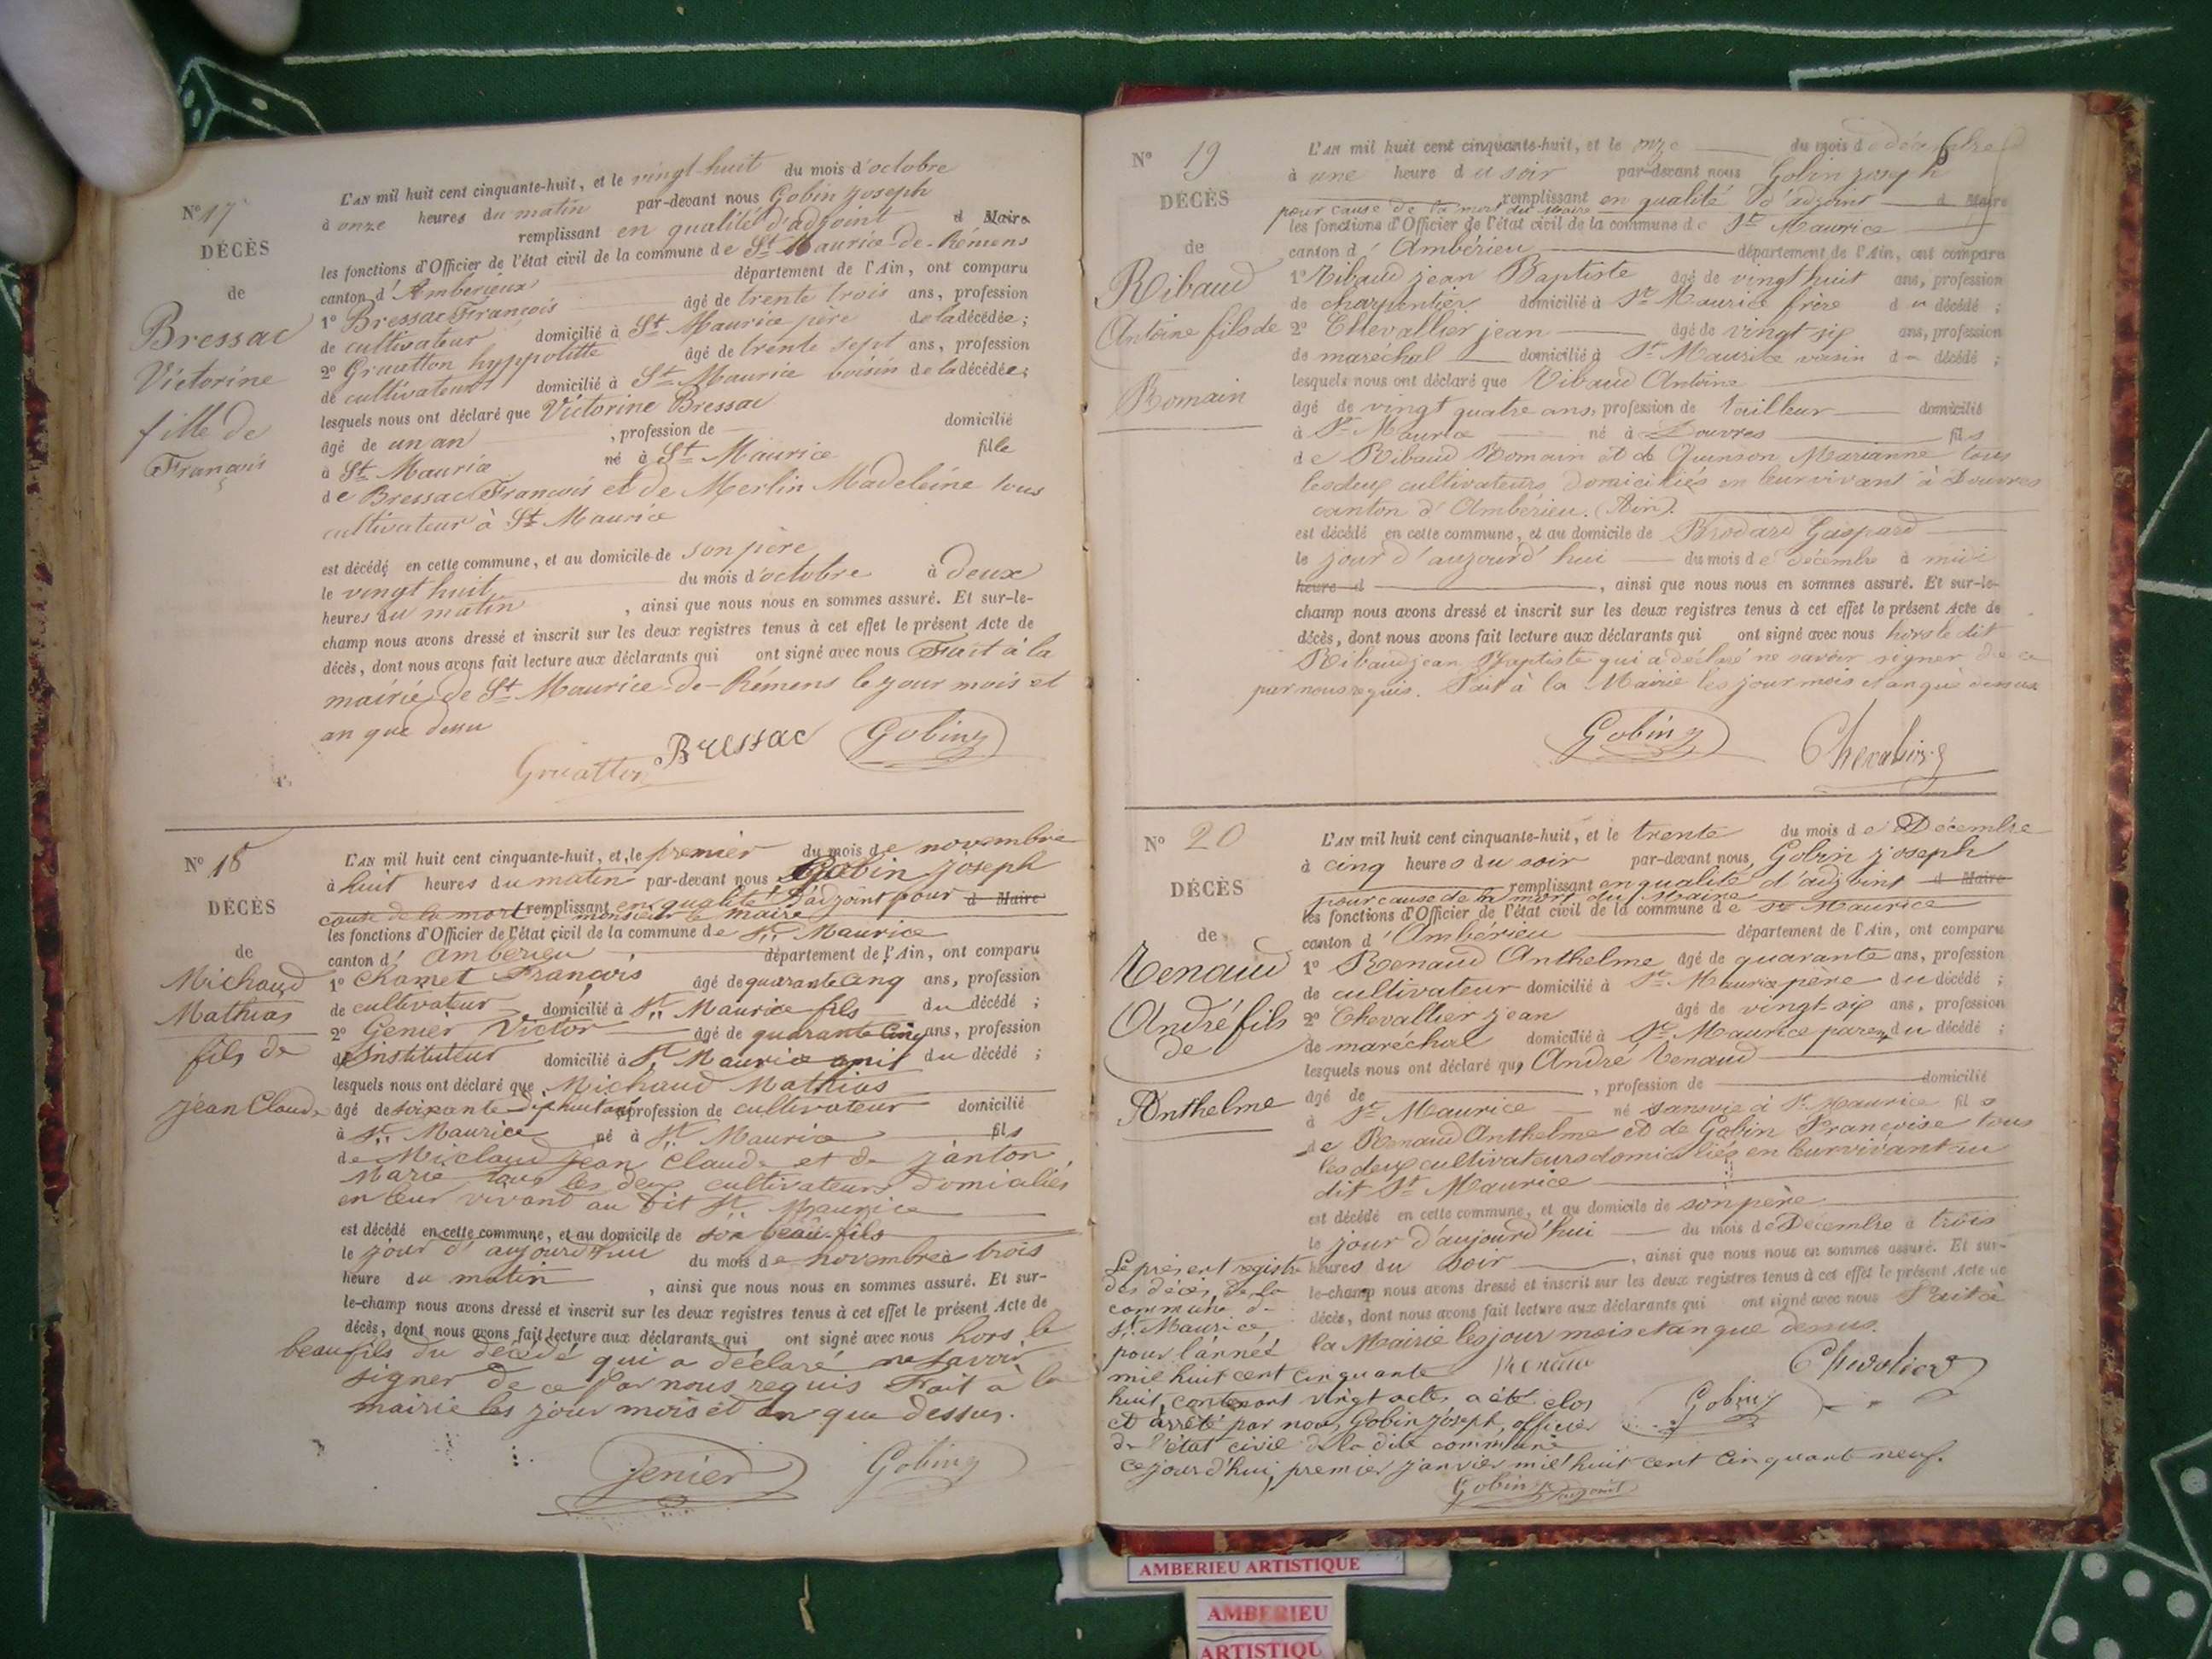 N° 17
DÉCÈS
de
Bressac
Victorine
fille de
François
L'AN mil huit cent cinquante-huit, et le vingt huit du mois d'octobre
à onze heures du matin par-devant nous Gobin joseph
remplissant en qualité d'adjoint d Maire
les fonctions d'Officier de l'état civil de la commune de St Maurice-de-Rémens
canton d'Amberieux département de l'Ain, ont comparu
1° Bressac François âgé de trente trois ans, profession
de cultivateur domicilié à St Maurice père de la décédée;
2° Gruatton hyppolitte âgé de trente sept ans, profession
de cultivateur domicilié à St Maurice voisin de la décédée;
lesquels nous ont déclaré que Victorine Bressac
âgé de un an , profession de domicilié
à St Maurice né à St Maurice fille
de Bressac François et de Merlin Madeleine tous
cultivateur à St Maurice
est décédé en cette commune, et au domicile de son père
le vingt huit du mois d'octobre à deux
heures du matin , ainsi que nous nous en sommes assuré. Et sur-le-
champ nous avons dressé et inscrit sur les deux registres tenus à cet effet le présent Acte de
décès, dont nous avons fait lecture aux déclarants qui ont signé avec nous Fait à la
mairie de St Maurice-de-Rémens le jour mois et
an que dessu
Gruatton Bressac Gobin j
N° 18
DÉCÈS
de
Michaud
Mathias
fils de
jean Claude
L'AN mil huit cent cinquante-huit, et le premier du mois de novembre
à huit heures du matin par-devant nous Gobin joseph
remplissant en qualité d'adjoint pour d Maire
cause de la mort de monsieur le maire
les fonctions d'Officier de l'état civil de la commune de St Maurice
canton d'amberieu département de l'Ain, ont comparu
1° Chamet François âgé de quarante cinq ans, profession
de cultivateur domicilié à St Maurice fils du décédé ;
2° Genier Victor âgé de quarante cinq ans, profession
de instituteur domicilié à St Maurice ami du décédé ;
lesquels nous ont déclaré que Michaud Mathias
âgé de soixante dix huit ans profession de cultivateur domicilié
à St Maurice né à St Maurice fils
de Michaud jean Claude et de janton
Marie tous les deux cultivateurs domiciliés
en leur vivant au dit St Maurice
est décédé en cette commune, et au domicile de son beau fils
le jour d'aujourd'hui du mois de novembre à trois
heure du matin , ainsi que nous nous en sommes assuré. Et sur-
le-champ nous avons dressé et inscrit sur les deux registres tenus à cet effet le présent Acte de
décès, dont nous avons fait lecture aux déclarants qui ont signé avec nous hors le
beau fils du décédé qui a déclaré ne savoir
signer de ce par nous requis Fait à la
mairie les jour mois et an que dessus.
Genier Gobin j
N° 19
DÉCÈS
de
Ribaud
Antoine fils de
Romain
L'AN mil huit cent cinquante-huit, et le onze du mois de décembre
à une heure du soir par-devant nous Gobin joseph
remplissant en qualité d'adjoint d Maire
pour cause de la mort du Maire
les fonctions d'Officier de l'état civil de la commune de St Maurice
canton d'Ambérieu département de l'Ain, ont comparu
1° Ribaud jean Baptiste âgé de vingt huit ans, profession
de charpentier domicilié à St Maurice frère du décédé ;
2° Chevallier jean âgé de vingt-six ans, profession
de maréchal domicilié à St Maurice voisin du décédé ;
lesquels nous ont déclaré que Ribaud Antoine
âgé de vingt quatre ans, profession de tailleur domicilié
à St Maurice né à Douvres fils
de Ribaud Romain et de Quinson Marianne tous
les deux cultivateurs domiciliés en leur vivant à Douvres
canton d'Ambérieu. (Ain).
est décédé en cette commune, et au domicile de Brodard Gaspard
le jour d'aujourd'hui du mois de décembre à midi
heure d , ainsi que nous nous en sommes assuré. Et sur-le-
champ nous avons dressé et inscrit sur les deux registres tenus à cet effet le présent Acte de
décès, dont nous avons fait lecture aux déclarants qui ont signé avec nous hors le dit
Ribaud jean Baptiste qui a déclaré ne savoir signer de ce
par nous requis. Fait à la Mairie les jour mois et an que dessus
Gobin j
N° 20
DÉCÈS
de
Renaud
André fils
de
Anthelme
L'AN mil huit cent cinquante-huit, et le trente du mois de Décembre
à cinq heures du soir par-devant nous, Gobin joseph
remplissant en qualité d'adjoint d Maire
pour cause de la mort du Maire
les fonctions d'Officier de l'état civil de la commune de St Maurice
canton d'Ambérieu département de l'Ain, ont comparu
1° Renaud Anthelme âgé de quarante ans, profession
de cultivateur domicilié à St Maurice père du décédé ;
2° Chevallier jean âgé de vingt-six ans, profession
de maréchal domicilié à St Maurice parent du décédé ;
lesquels nous ont déclaré que André Renaud
âgé de , profession de domicilié
à St Maurice né sans vie à St Maurice fils
de Renaud Anthelme et de Gobin Françoise tous
les deux cultivateurs domiciliés en leur vivant au
dit St Maurice
est décédé en cette commune, et au domicile de son père
le jour d'aujourd'hui du mois de Décembre à trois
heures du soir , ainsi que nous nous en sommes assuré. Et sur-
le-champ nous avons dressé et inscrit sur les deux registres tenus à cet effet le présent Acte de
décès, dont nous avons fait lecture aux déclarants qui ont signé avec nous Fait à
la Mairie les jour mois et an que dessus.
Renaud Chevalier
Gobin j
Le présent registre
des décès de la
commune de
St Maurice,
pour l'année
mil huit cent cinquante
huit, contenant vingt actes a été clos
et arrêté par nous, Gobin joseph, officier
de l'état civil de la dite commune
ce jourd'hui, premier janvier mil huit cent cinquante neuf.
Gobin j adjoint
AMBERIEU ARTISTIQUE
AMBERIEU
ARTISTIQU